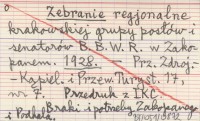 Zebranie regjonalne
krakowskiej grupy posłów i
senatorów B.B.W.R. w Zako-
panem. 1928. — Prz. Zdroj.-
-Kąpiel. i Przew. Turyst. 17,
nr 7. Przedruk z IKC.
Braki i potrzeby Zakopanego
i Podhala.